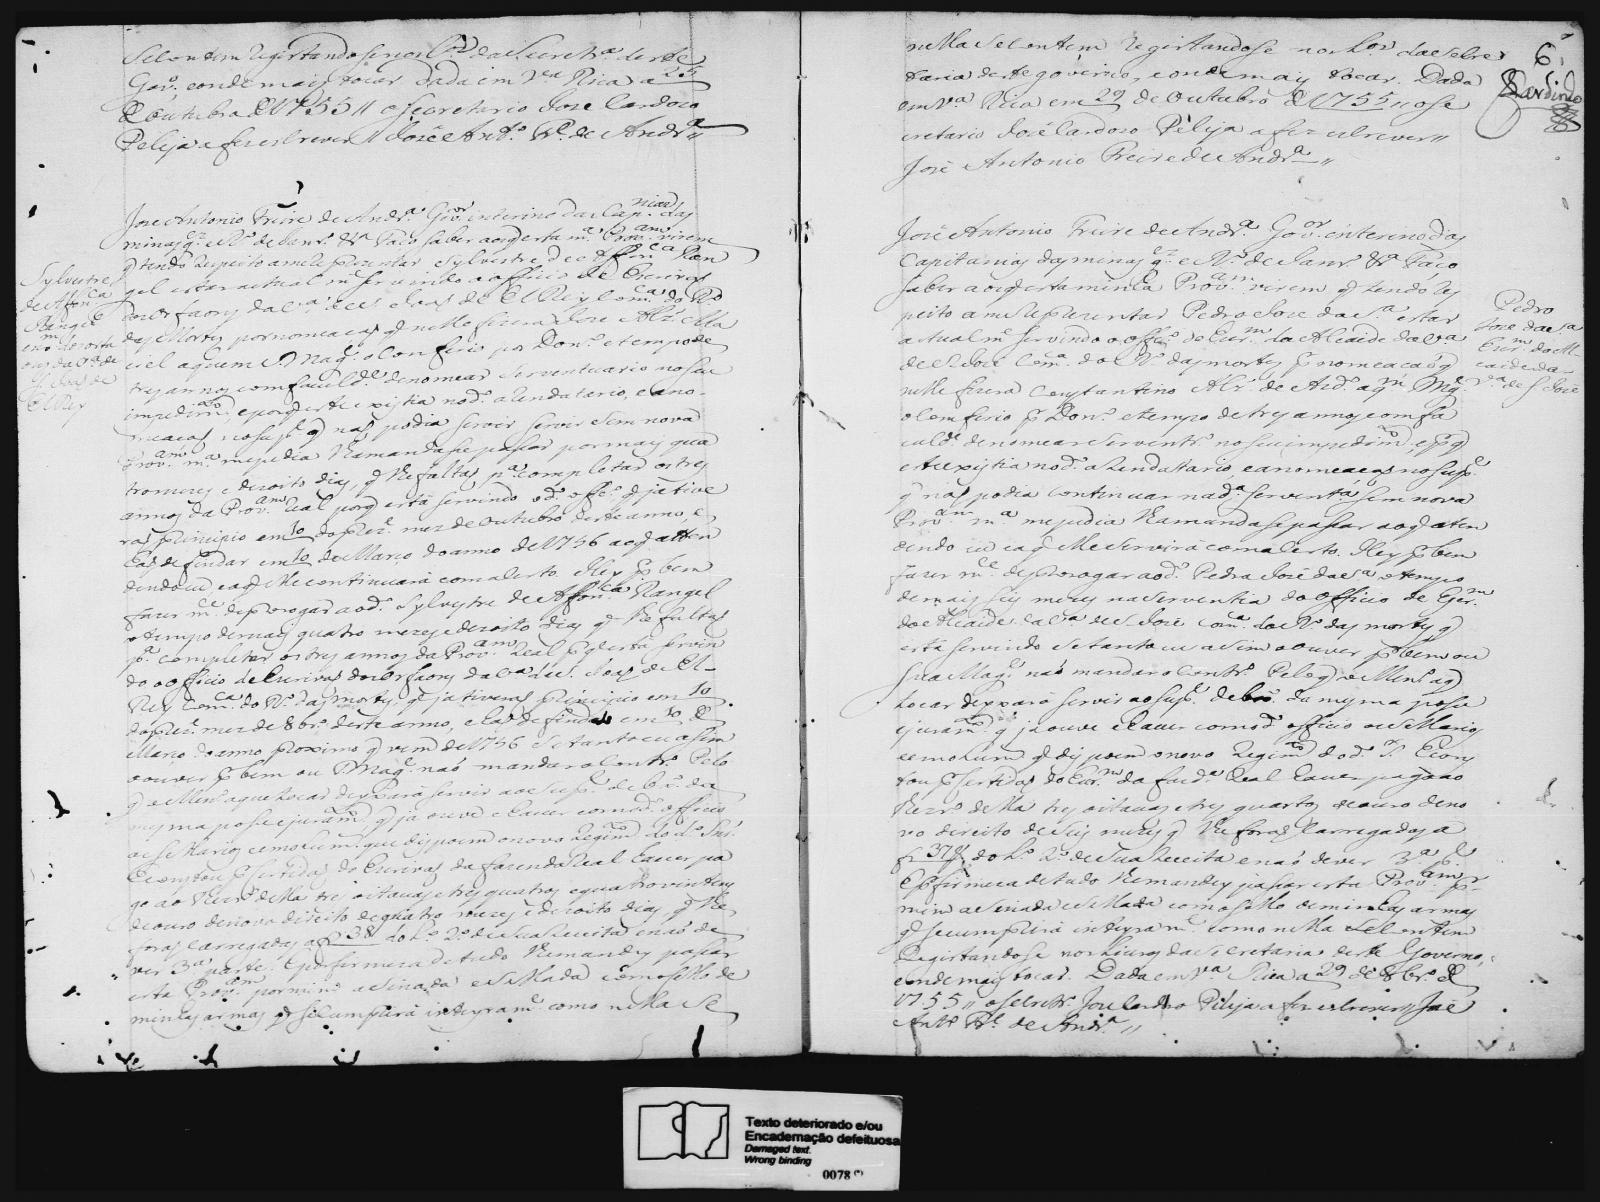 Secontem Registandose nos L.os da Secretr.a deste
Gov.o e onde mais tocar Dada em V.a Rica a 25
de Outubro de 1755 // o Secretario Joze Cardozo
Peleja a fez escrever // Jozê Ant.o Fr.e de Andr.a //
Joze Antonio Freire de Andr.a Gov.or interino das Cap.nias das
minas g.es e R.o de Janr.o &.a Faço saber aos q esta m.a Prov.am virem
q tendo respeito a me reprezentar Sylvestre de Affon.ca Ran
gel estar actualm.e servindo o officio de Escrivaõ
dos orfaons da V.a de S. Joaõ de El Rey Com.ca do R.o
das Mortes por nomeaçaõ q nelle fizera Joze Alz' Ma
ciel a quem S Mag.e o conferio por Don.o e tempo de
tres annos com faculd.e de nomear serventuario no seu
impedim.to, e porq este existia no d.o arendatario, e a no-
meaçaõ no sup.e q naõ podia servir sem nova
Prov.am m.a me pedia lha mandase pasar por mais qua
tro mezes e dezoito dias, q lhe faltaõ p.a completar os tres
annos da Prov.am Real porq está servindo o d.o off.o q ja tive
raõ principio em 10 do prez.e mez de Outubro deste anno, e
haõ de findar em 10 de Março do anno de 1756 ao q aten
dendo eu e a q lhe continuará com acerto. Hey p bem
fazer m.ce de prorogar ao d.o Sylvestre de Affon.ca Rangel
o tempo de mais quatro mezes e dezoito dias q lhe faltaõ
p.a completar os tres annos da Prov.am Real p q está servin
do o officio de Escrivaõ dos Orfaons da V.a de S. Joaõ de El-
Rey Com.ca do R.o das mortes, q ja tiveraõ principio em 10
do prez.e mez de 8br.o deste anno, e haõ de findar em 10 de
Março do anno proximo q vem de 1756 se tanto eu asim
o ouver p bem ou S Mag.e naõ mandar o contr.o Pelo
q o Menistro a que tocar deixará servir ao sup.e debx.o da
mesma pose e juram.to q ja ouve e haver com o d.o officio
os selarios e emolum.tos que dispoem o novo Regim.to do d.o Snr.
E constou p certidaõ do Escrivaõ da fazenda Real haver pa
go ao Thezr.o della tres oitavas e tres quartos e quatro vintens
de ouro de novo direito de quatro mezes e dezoito dias q lhe
foraõ carregadas a f 38 do L.o 2.o de sua receita e naõ de
ver 3.a parte. E por firmeza de tudo lhe mandey pasar
esta Prov.am por mim asinada e sellada com o sello de
minhas armas q se cumprirá inteyram.te como nella se
Sylvestre
de Affon.ca
Rangel
El Rey
nella secontem Registandose nos L.os da Secre
taria deste governo, e onde mais tocar. Dada
em V.a Rica em 29 de Outubro de 1755 // o Se
cretario Joze Cardozo Peleja a fez escrever //
Jozê Antonio Freire de Andr.a //
6
Sardinho
Jozê Antonio Freire de Andr.a Gov.or interino das
Capitanias das minas g.es e R.o de Janr.o &.a Faço
saber aos q esta minha Prov.am virem q tendo res
peito a me reprezentar Pedro Joze da S.a estar
actualm.e servindo o off.o de Escr.m da Alcaide da V.a
de S. Joze Com.ca do R.o das mortes p nomeaçaõ q
nelle fizera Constantino Alz' de Azd.o a q.m S Mg.e
o conferio p Don.o e tempo de tres annos com fa
culd.e de nomear serventr.o no seu impedim.to, e p q
este existia no d.o arendatario e a nomeaçaõ no sup.e
q naõ podia continuar na d.a serventia sem nova
Prov.am m.a me pedia lha mandase pasar ao q aten
dendo eu e a q lhe servirá com acerto. Hey p bem
fazer m.ce de prorogar ao d.o Pedro Jozê da S.a o tempo
de mais seis mezes na serventia do officio de Escr.m
do Alcaide da V.a de S. Joze Com.ca do R.o das mortes q
está servindo se tanto eu asim o ouver p bem ou
Sua Mag.e naõ mandar o contr.o Pelo q o Menistro a q
tocar deyxará servir ao sup.e debx.o da mesma pose
e juram.to q ja ouve e haver com o d.o officio os selarios
e emolum.tos q dispoem o novo Regim.to do d.o Snr. E cons
tou p certidaõ do Escr.m da fazd.a Real haver pago ao
Thezr.o della tres oitavas e tres quartos de ouro de no
vo direito de seis mezes q lhe foraõ carregadas a
f 37 do L.o 2.o de sua receita e naõ dever 3.a p.te
E p firmeza de tudo lhe mandey pasar esta Prov.am p
mim asinada e sellada com o sello de minhas armas
q se cumprirá inteyram.te como nella secontem
Registandose nos Livros da Secretaria deste Governo,
e onde mais tocar. Dada em V.a Rica a 29 de 8br.o de
1755 // o Secretr.o Joze Cardozo Peleja a fez escrever // Joze
Ant.o Fr.e de Andr.a //
Pedro
Joze da S.a
Escr.m do Al
caide da
V.a de S. Joze
Texto deteriorado e/ou
Encadernação defeituosa
Damaged text.
Wrong binding
0078 (*)